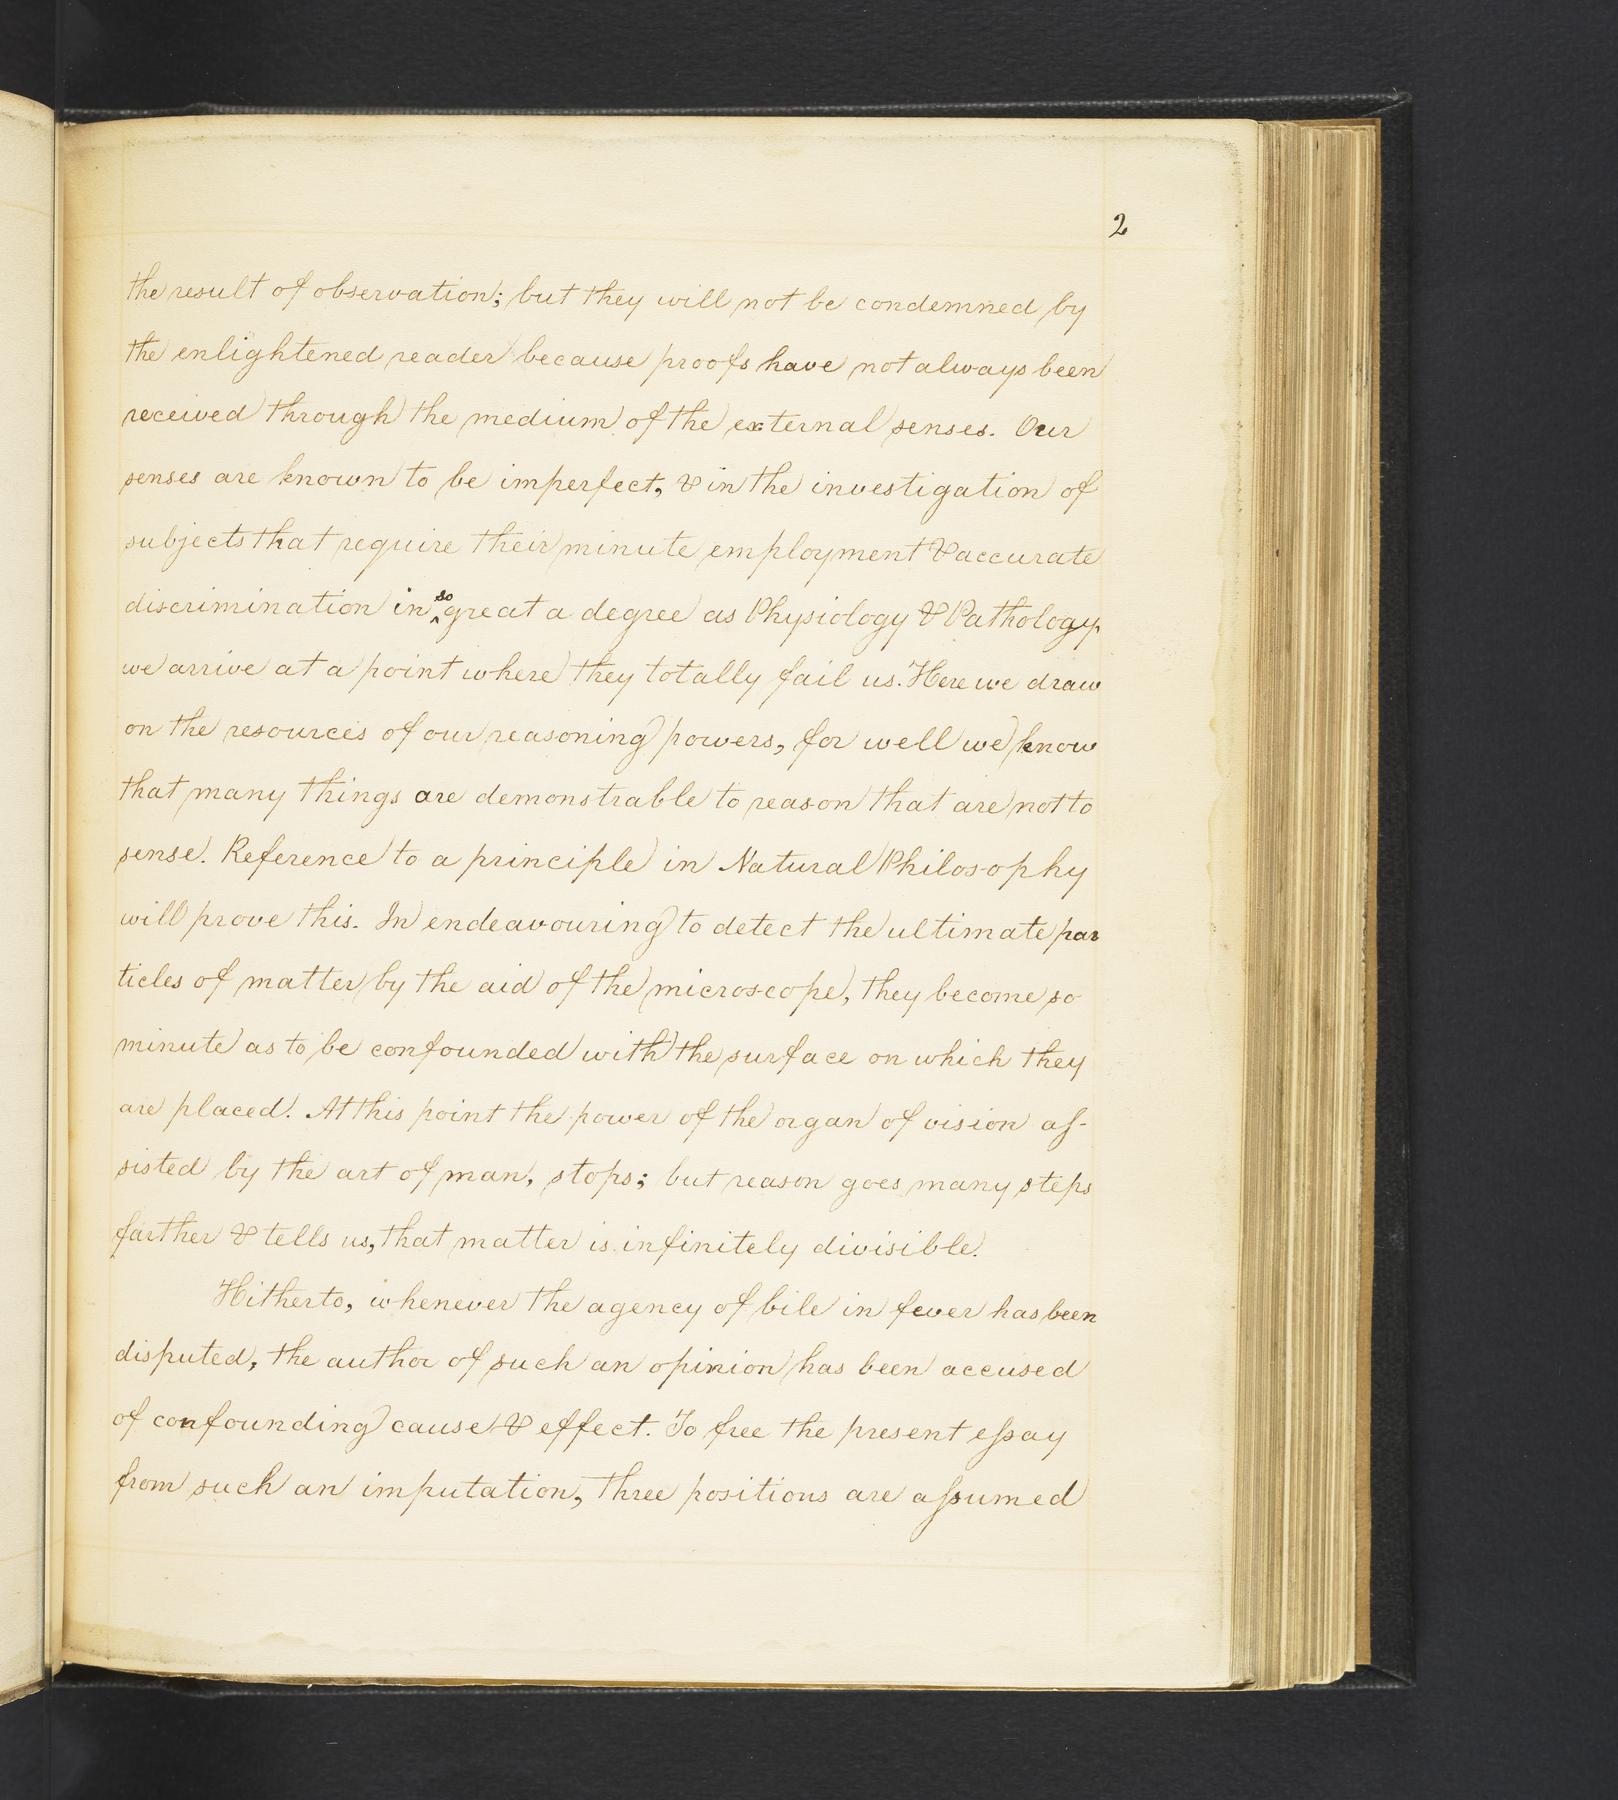 2
the result of observation; but they will not be condemned by
the enlightened reader because proofs have not always been
received through the medium of the external senses. Our
senses are known to be imperfect, & in the investigation of
subjects that require their minute employment & accurate
discrimination in ^so great a degree as Physiology & Pathology,
we arrive at a point where they totally fail us. Here we draw
on the resources of our reasoning powers, for well we know
that many things are demonstrable to reason that are not to
sense. Reference to a principle in Natural Philosophy
will prove this. In endeavouring to detect the ultimate par
ticles of matter by the aid of the microscope, they become so
minute as to be confounded with the surface on which they
are placed. At this point the power of the organ of vision aſ-
sisted by the art of man, stops; but reason goes many steps
farther & tells us, that matter is infinitely divisible.
Hitherto, whenever the agency of bile in fever has been
disputed, the author of such an opinion has been accused
of confounding cause & effect. To free the present eſsay
from such an imputation, three positions are aſsumed